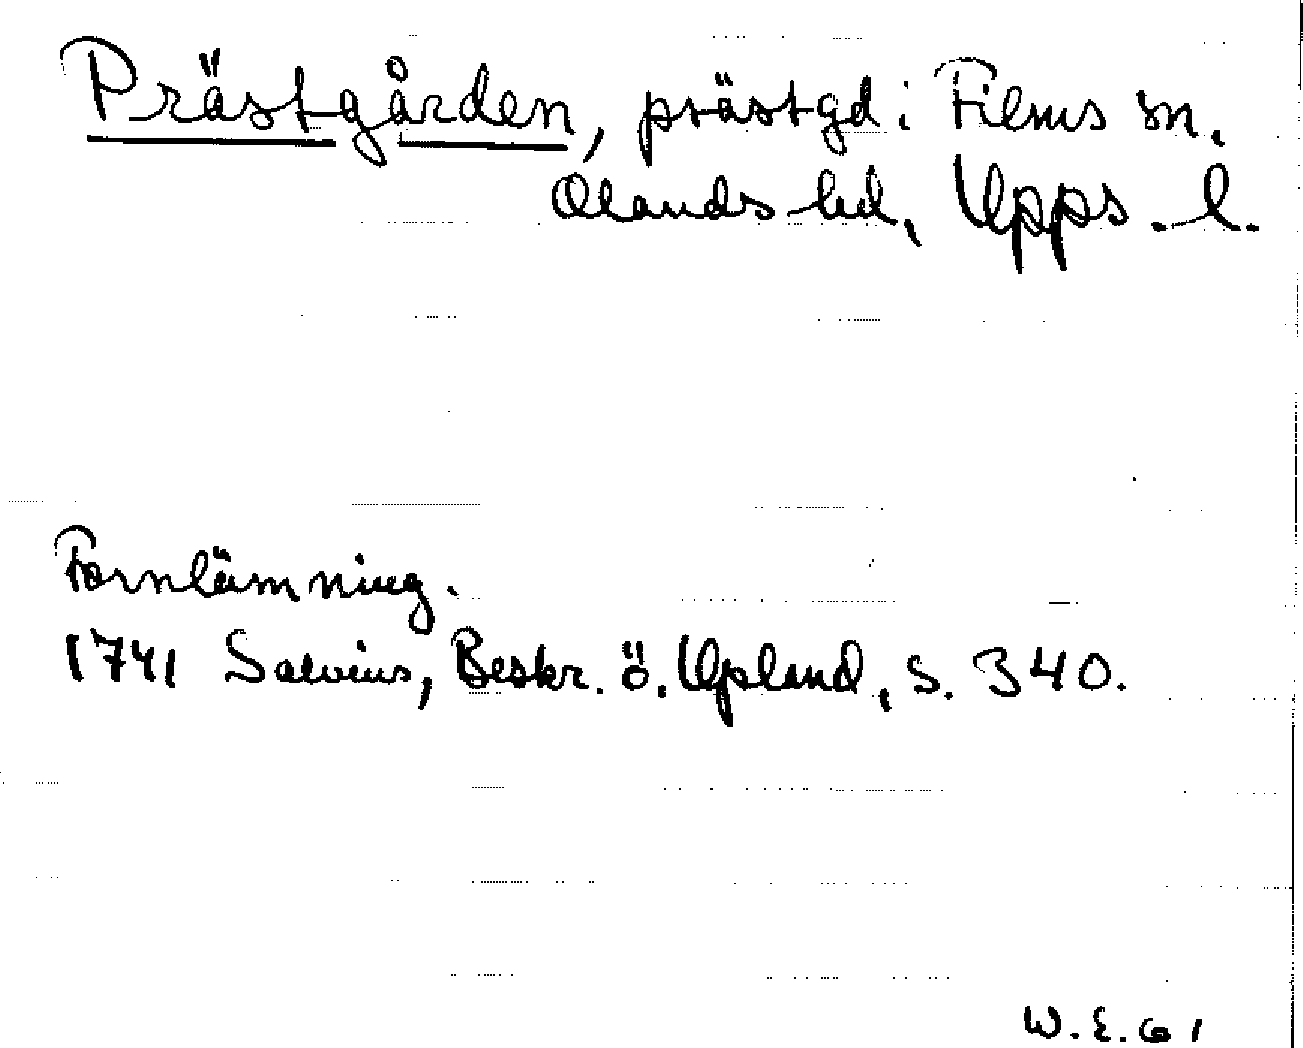 Prästgården, prästgd i Films sn.
Olands hd, Upps. l.
Fornlämning.
1741 Salvius, Beskr. ö. Upland, s. 340.
W.E. 61